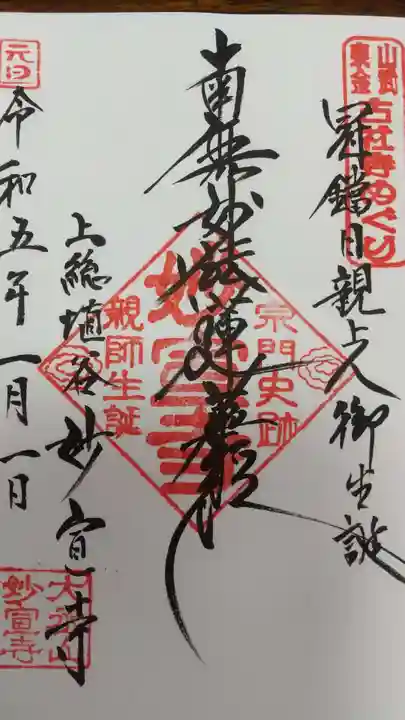 山武東金
古社寺めぐり
冠鐺日親上人御生誕
南無妙法蓮華経
宗門史跡
妙宣寺
親師生誕
上総埴谷妙宣寺
元日
令和五年一月一日
妙宣寺